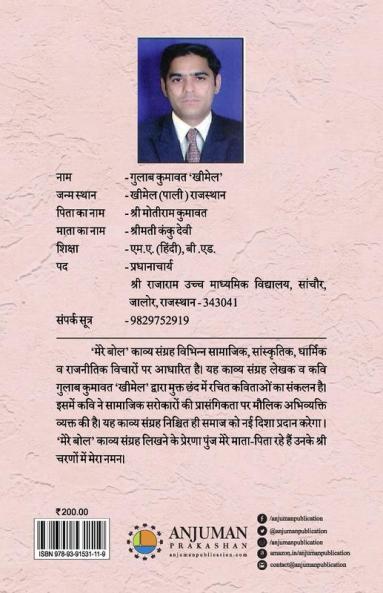 नाम - गुलाब कुमावत ‘खीमेल’
जन्म स्थान - खीमेल (पाली) राजस्थान
पिता का नाम - श्री मोतीराम कुमावत
माता का नाम - श्रीमती कंकु देवी
शिक्षा - एम.ए. (हिंदी), बी .एड.
पद - प्रधानाचार्य
श्री राजाराम उच्च माध्यमिक विद्यालय, सांचौर,
जालोर, राजस्थान - 343041
संपर्क सूत्र - 9829752919
‘मेरे बोल’ काव्य संग्रह विभिन्न सामाजिक, सांस्कृतिक, धार्मिक
व राजनीतिक विचारों पर आधारित है। यह काव्य संग्रह लेखक व कवि
गुलाब कुमावत ‘खीमेल’ द्वारा मुक्त छंद में रचित कविताओं का संकलन है।
इसमें कवि ने सामाजिक सरोकारों की प्रासंगिकता पर मौलिक अभिव्यक्ति
व्यक्त की है। यह काव्य संग्रह निश्चित ही समाज को नई दिशा प्रदान करेगा ।
‘मेरे बोल’ काव्य संग्रह लिखने के प्रेरणा पुंज मेरे माता-पिता रहे हैं उनके श्री
चरणों में मेरा नमन।
₹ 200.00
ISBN 978-93-91531-11-9
ANJUMAN
PRAKASHAN
anjumanpublication.com
/anjumanpublication
@anjumanpublication
/anjumanpublication
amazon.in/anjumanpublication
contact@anjumanpublication